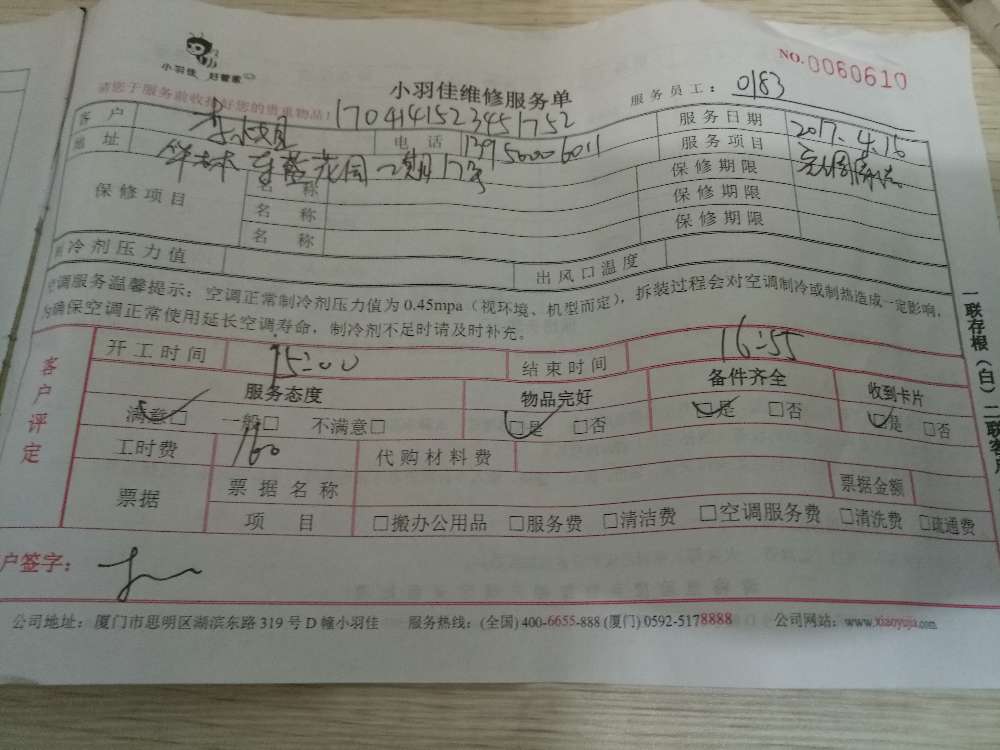 小羽佳 好管家
NO.0060610
请您于服务前收拾好您的贵重物品!
小羽佳维修服务单
服务员工: 0183
1704141523451752
客户 李小姐 电话 服务日期 2017.4.15
地址 花园二期17号 服务项目
保修项目 名称 保修期限
名称 保修期限
名称 保修期限
冷剂压力值 出风口温度
空调服务温馨提示:空调正常制冷剂压力值为0.45mpa(视环境、机型而定),拆装过程会对空调制冷或制热造成一定影响,
为确保空调正常使用延长空调寿命,制冷剂不足时请及时补充。
客户评定
开工时间 15:00 结束时间 16:55
服务态度 物品完好 备件齐全 收到卡片
满意□ 一般□ 不满意□ □是 □否 □是 □否 □是 □否
工时费 160 代购材料费
票据 票据名称 票据金额
项目 □搬办公用品 □服务费 □清洁费 □空调服务费 □清洗费 □疏通费
户签字:
公司地址:厦门市思明区湖滨东路319号D幢小羽佳 服务热线:(全国)400-6655-888(厦门)0592-5178888 公司网站:www.xiaoyujia.com
一联存根(白)二联客户